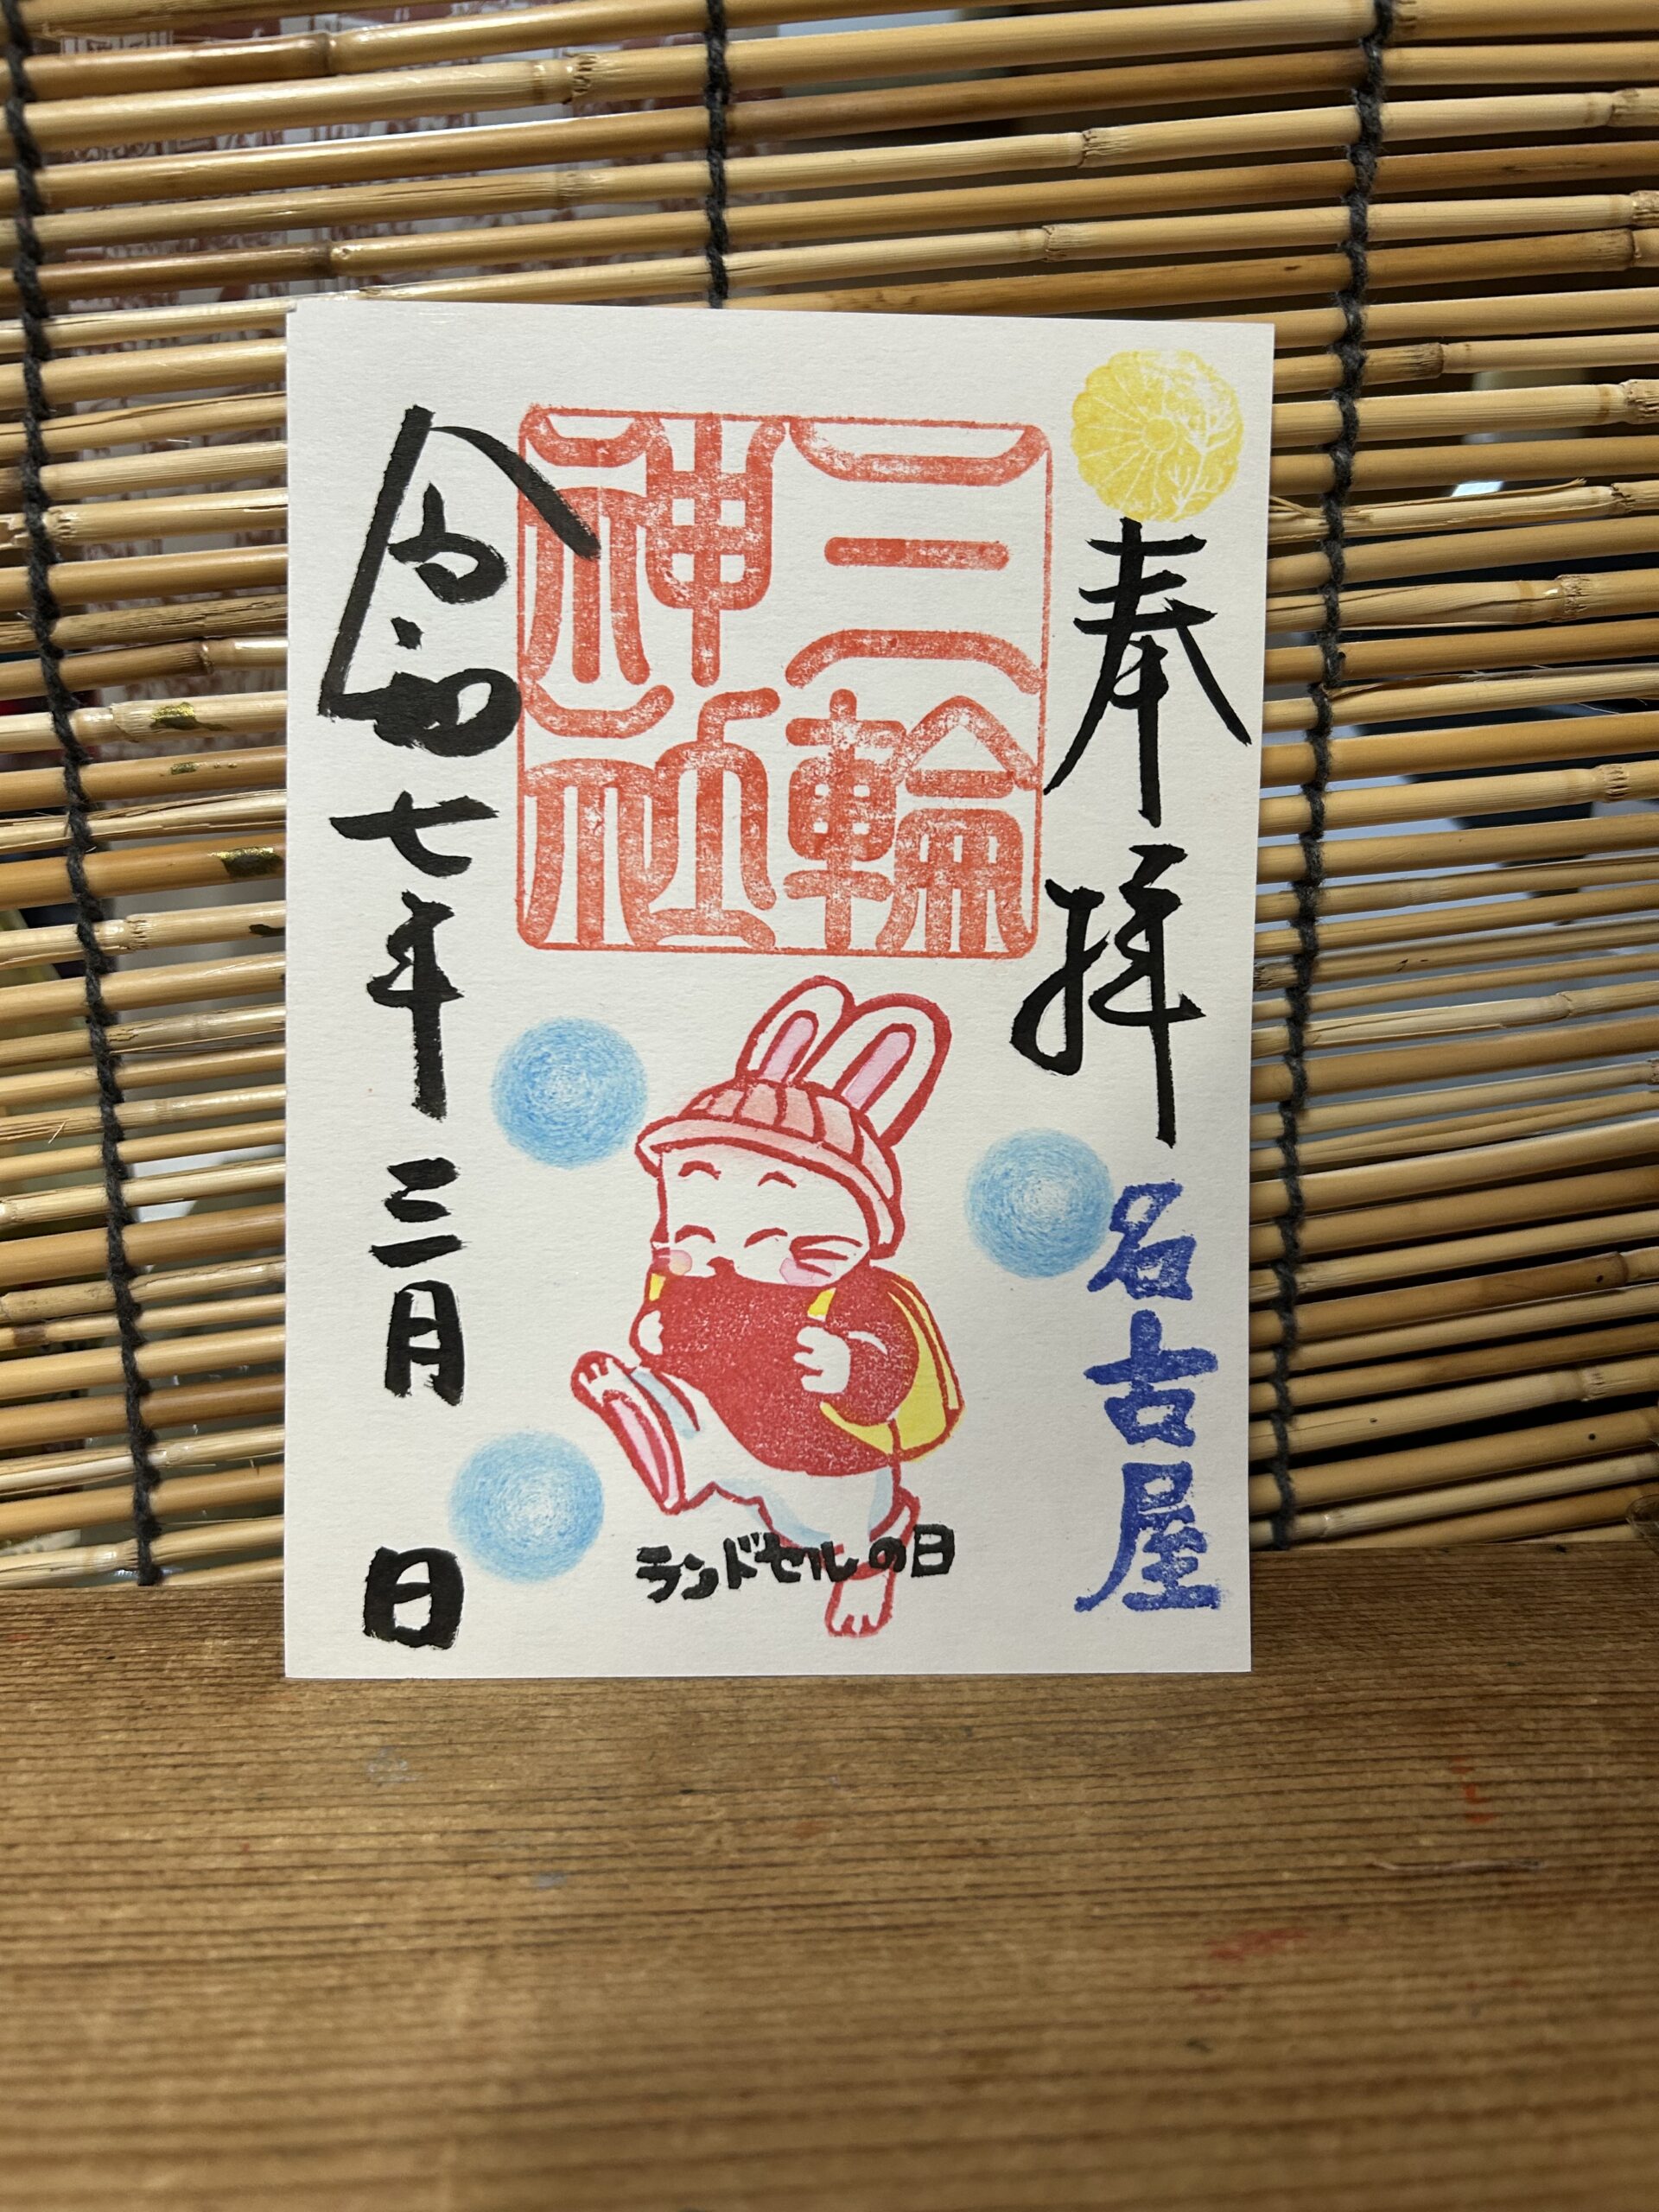 奉拝
名古屋
三輪
神社
ランドセルの日
令和七年三月 日